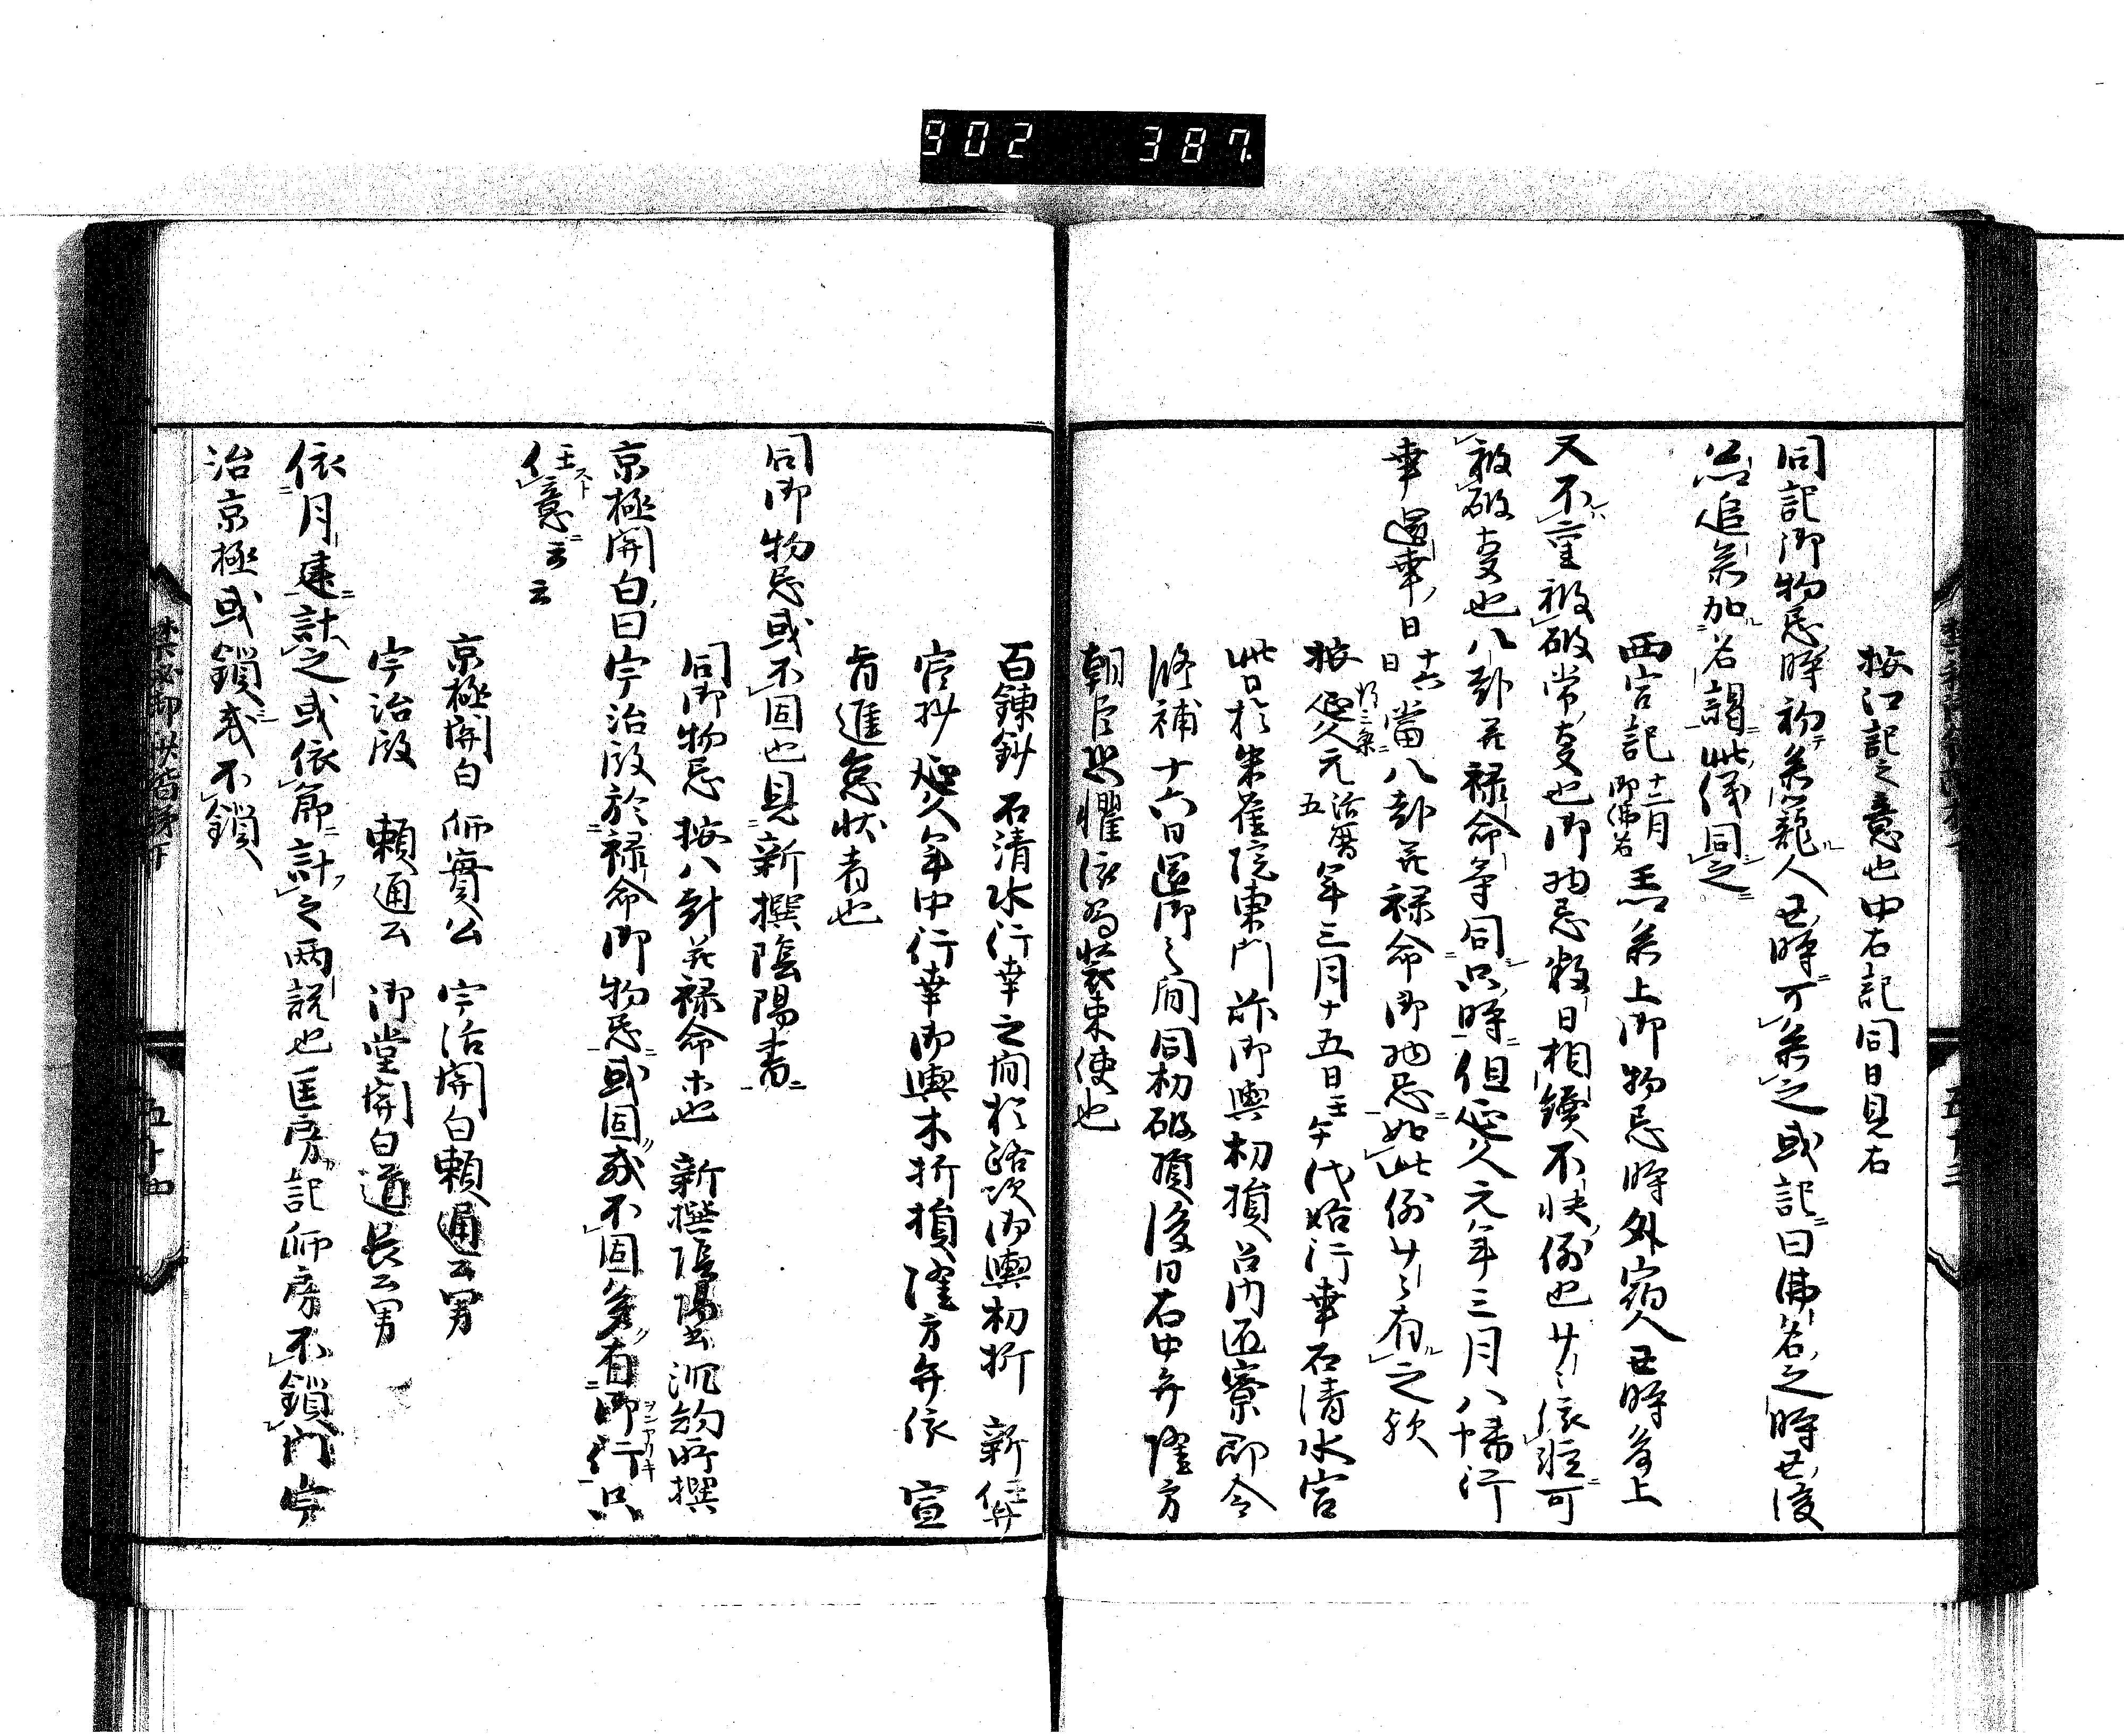 902 387
按江記之意也中右記同日見右
同記御物忌時初参籠人丑時可参之或記曰佛名之時丑後
召追参加名謁此儀同之
西宮記十二月御佛名 王参上御物忌時外宿人丑時参上
又不重被破常事也御物忌数日相續不快例也廿々依難可
被破事也八卦并禄命等同只時但延久元年三月八幡行
幸還幸日十六日當八卦并禄命御物忌如此例廿々有之欤
按延久元後三条治暦五年三月十五日壬午代始行幸石清水宮
此日於朱雀院東門前御輿朸損召内匠寮即令
修補十六日還御之間同朸破損後日右中弁隆方
朝臣恐懼依為装束使也
五十三
百錬鈔 石清水行幸之間於路次御輿朸折 新任弁
官抄 延久年中行幸御輿木折損隆方弁依 宣
旨進怠状者也
同御物忌或不固也見新撰陰陽書
同御物忌 按八卦并禄命ホ也 新撰陰陽書汎勃所撰
京極関白曰宇治殿於禄命御物忌或固或不固多有御行只
任意云云
京極関白 師實公 宇治関白頼通公男
宇治殿 頼通公 御堂関白道長公男
依月建計之或依節計之両説也匡房記師房不鎖門宇
治京極或鎖或不鎖
禁秘御抄階梯下
五十四